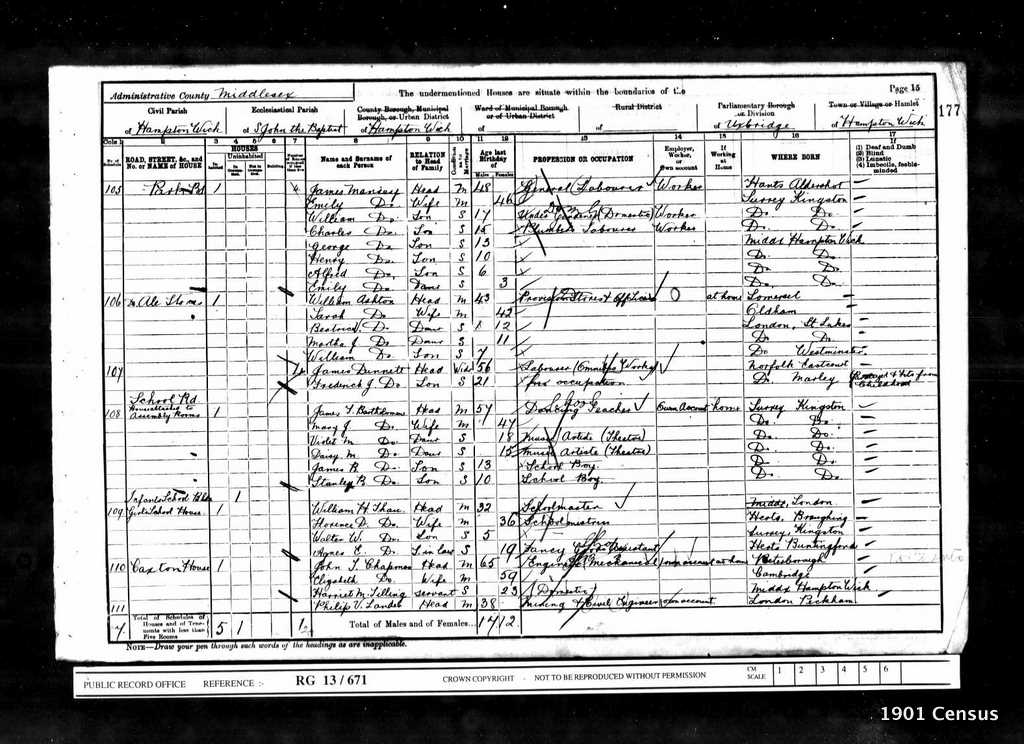 Administrative County Middlesex
The undermentioned Houses are situate within the boundaries of the
Page 15
177
Civil Parish of Hampton Wich
Ecclesiastical Parish of St John the Baptist
County Borough, Municipal Borough, or Urban District of Hampton Wich
Ward of Municipal Borough or of Urban District of
Rural District of
Parliamentary Borough or Division of Uxbridge
Town or Village or Hamlet of Hampton Wich
Cols 1 2 3 4 5 6 7 8 9 10 11 12 13 14 15 16 17
ROAD, STREET, &c., and No. or NAME of HOUSE
HOUSES
Uninhabited
Name and Surname of each Person
RELATION to Head of Family
Age last Birthday of
Males Females
PROFESSION OR OCCUPATION
Employer, Worker, or Own account
If Working at Home
WHERE BORN
(1) Deaf and Dumb
(2) Blind
(3) Lunatic
(4) Imbecile, feeble-minded
103 Park Rd 1 4 James Head M 48 General Labourer Worker Hants Aldershot
Emily Do Wife M 46 Surrey Kingston
William Do Son S 17 Under Gardener (Domestic) Worker Do Do
Charles Do Son S 15 Plumbers Labourer Worker Do Do
George Do Son S 13 Midds Hampton Wich
Henry Do Son S 10 Do Do
Alfred Do Son S 6 Do Do
Emily Do Daur S 3 Do Do
106 Ale Stores 1 William Ashton Head M 43 O at home Somerset
Sarah Do Wife M 42 Oldham
Beatrice Do Daur S 12 London, St Lukes
Martha J Do Daur S 11 Do Do
William Do Son S 7 Do Westminster
107 James Dennett Head Widr 56 Labourer (Omnibus Works) Norfolk
Frederick J Do Son S 21 No occupation Do
Childhood
School Rd
108 Assembly Rooms 1 James T Bartholomew Head M 57 Dancing Teacher Own Account home Surrey Kingston
Mary J Do Wife M 47 Do Do
Violet M Do Daur S 18 Music Artiste (Theatre) Do Do
Daisy M Do Daur S 15 Music Artiste (Theatre) Do Do
James R Do Son S 13 School Boy Do Do
Stanley B Do Son S 10 School Boy Do Do
Infants School 1
109 Girls School House 1 William H Head M 32 Schoolmaster Midds, London
Florence D. Do Wife M 36 Schoolmistress Herts, Braughing
Walter W Do Son S 5 Surrey Kingston
Agnes E. Do S in law S 19 Fancy Assistant Herts Buntingford
110 Caxton House 1 John T Chapman Head M 65 Engineer (Mechanical) own account at home Peterborough
Elizabeth Do Wife M 59 Cambridge
Harriet M Tilling servant S 23 (Domestic) Middx Hampton Wich
111 Philip V. Head M 38 Mining & Civil Engineer own account London Peckham
7 Total of Schedules of Houses and of Tenements with less than Five Rooms 5 1 Total of Males and of Females 17 12
NOTE—Draw your pen through such words of the headings as are inapplicable.
PUBLIC RECORD OFFICE REFERENCE :- RG 13/671 CROWN COPYRIGHT - NOT TO BE REPRODUCED WITHOUT PERMISSION CM SCALE 1 2 3 4 5 6
1901 Census